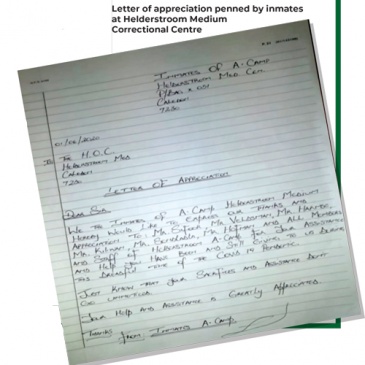 Letter of appreciation penned by inmates
at Helderstroom Medium
Correctional Centre
Inmates Of A-Camp
Helderstroom Med Cen
P/Bag x
Caledon
7230
To: The H.O.C.
Helderstroom Med
Caledon
7230
Letter Of Appreciation
Dear Sir,
We The Inmates of A-Camp Helderstroom Medium
Hereby Would Like To Express Our Thanks And
Appreciation To Mr. Mr. Veldsman, Mr. Hammer,
Mr. Mr. Mr. And All Members
And Staff of Helderstroom A-Camp For Your Assistance
And Help You Have Been And Still Giving To Us During
This Dreadful Time of The Covid 19 Pandemic.
Just Know That Your Sacrifices And Assistance Dont
Go Unnoticed.
Your Help And Assistance Is Greatly Appreciated.
Thanks From: Inmates A-Camp